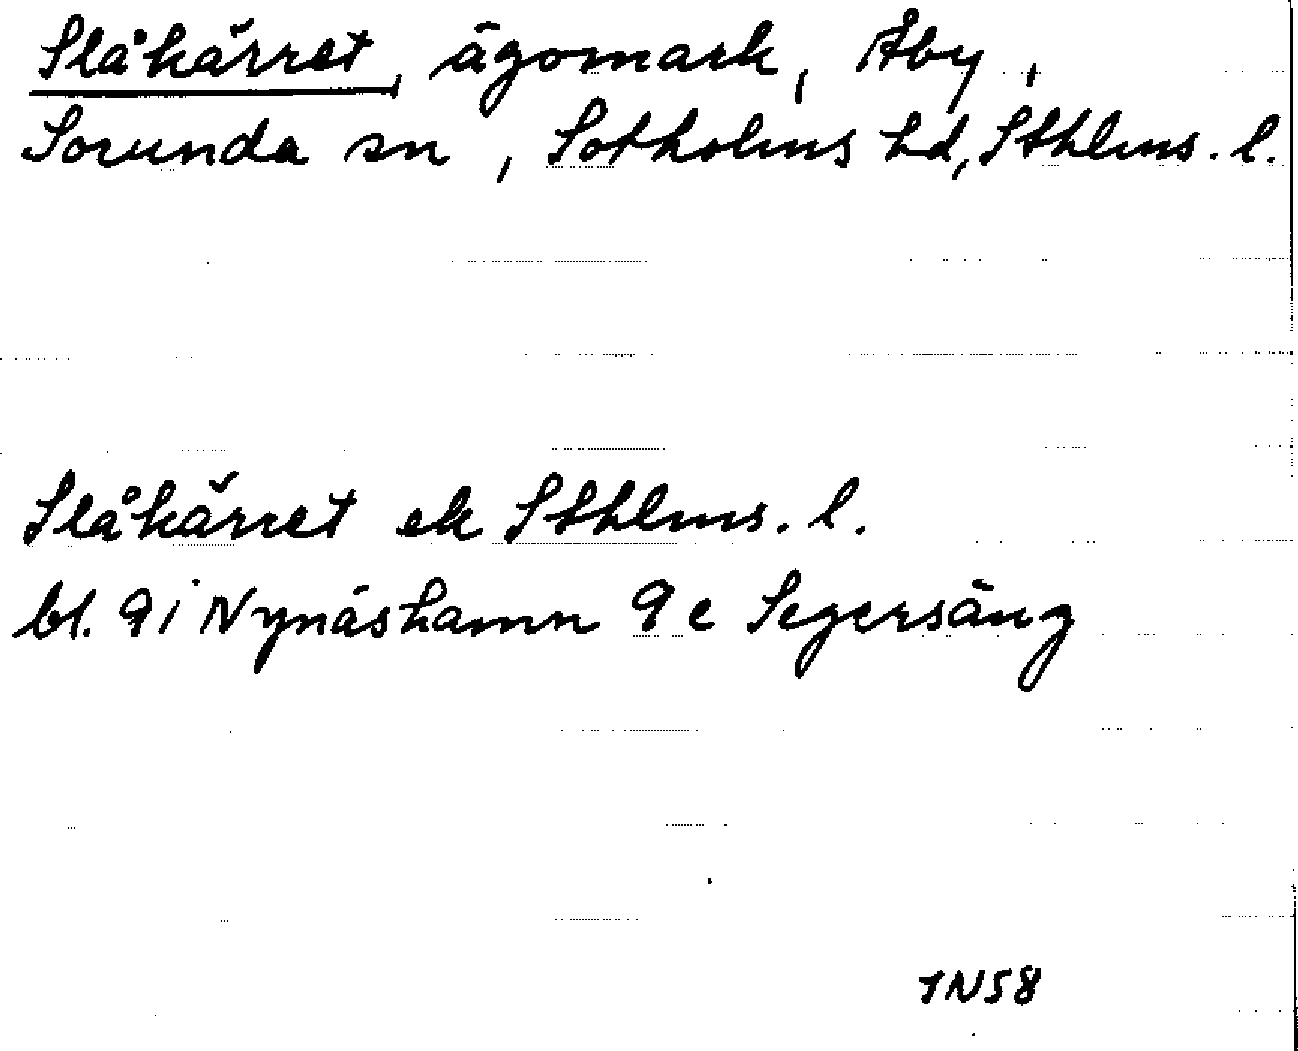 Slåkärret, ägomark, Åby,
Sorunda sn, Sotholms hd, Sthlms. l.
Slåkärret ek Sthlms. l.
bl. 9i Nynäshamn 9e Segersäng
1N58